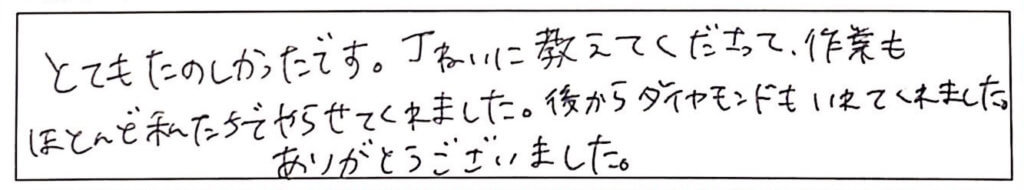 とてもたのしかったです。丁ねいに教えてくださって、作業も
ほとんど私たちでやらせてくれました。後からダイヤモンドもいれてくれました。
ありがとうございました。